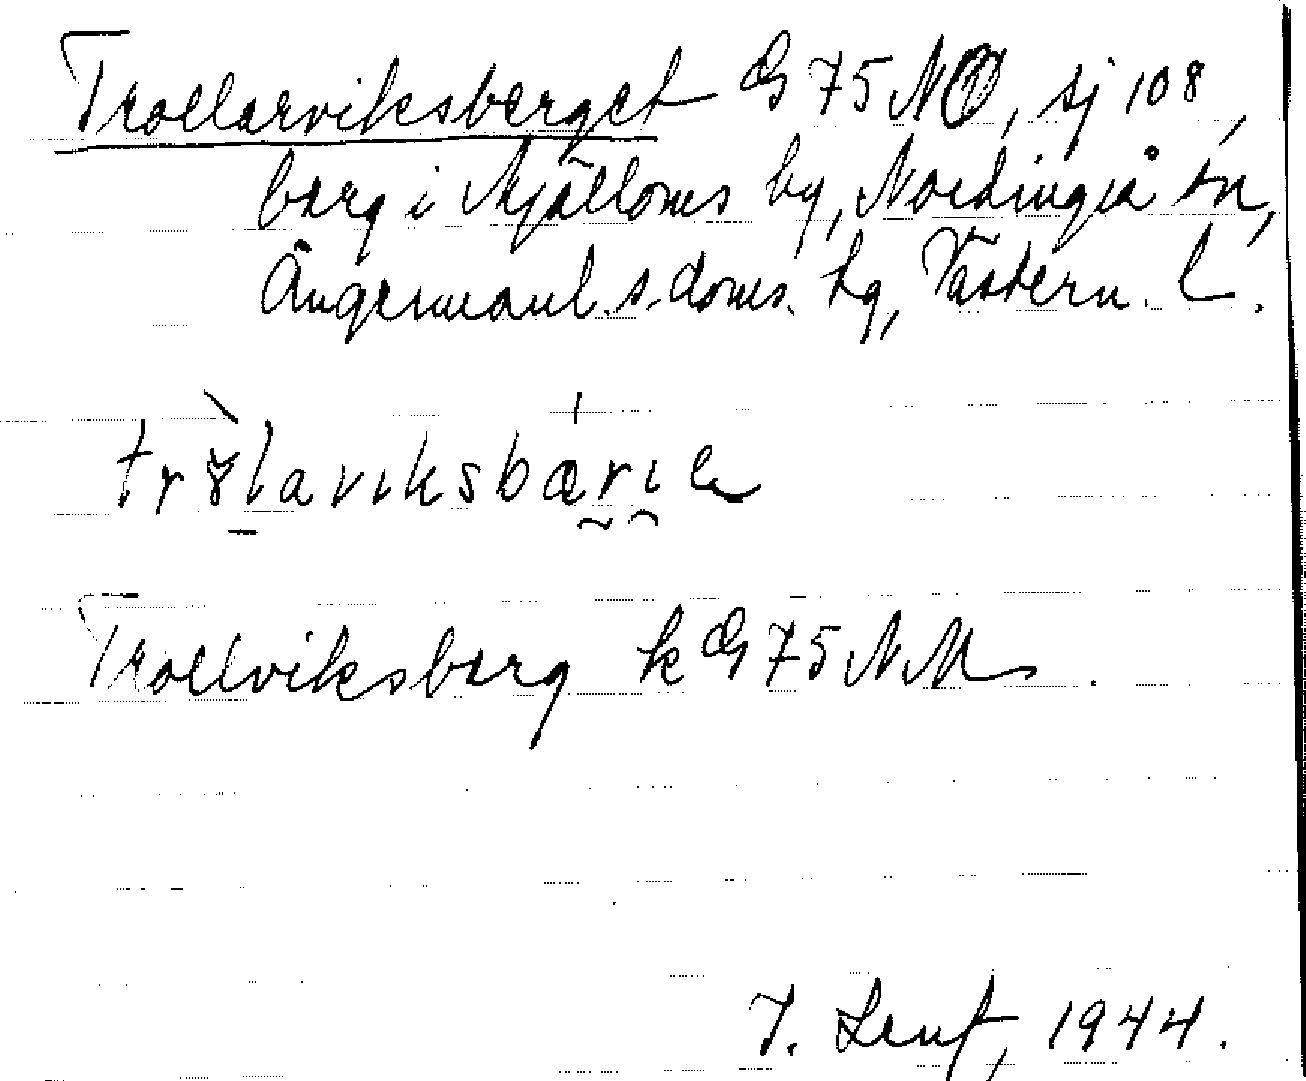 Trollarviksberget G 75 NO, sj 108,
berg i Mjälloms by, Nordingrå sn,
Ångermanl. s. doms. hg, Västern. l.
Trollviksberg k G 75 NM
1944.